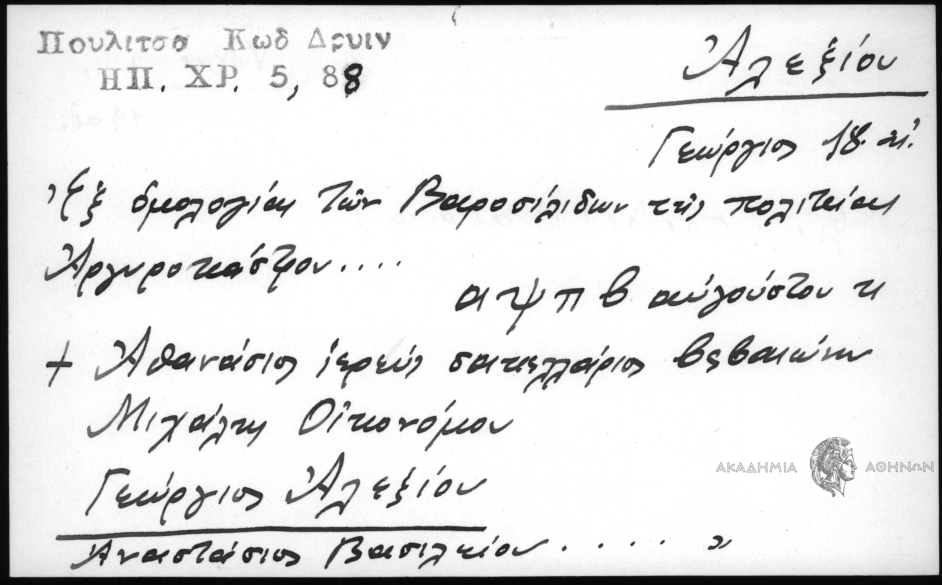 Πουλιτσα Κωδ Δρυιν
ΗΠ. ΧΡ. 5, 88
Ἀλεξίου
Γεώργιος 18. αἰ.
Ἐξ ὁμολογίας τῶν Βαροσιλιδων τῆς πολιτείας
Ἀργυροκάστρου....
αψπβ αὐγούστου κ
+ Ἀθανάσιος ἱερεύς σακελλάριος βεβαιώνω
Μιχάλης Οἰκονόμου
Γεώργιος Ἀλεξίου
Ἀναστάσιος Βασιλείου ..... »
ΑΚΑΔΗΜΙΑ ΑΘΗΝΩΝ